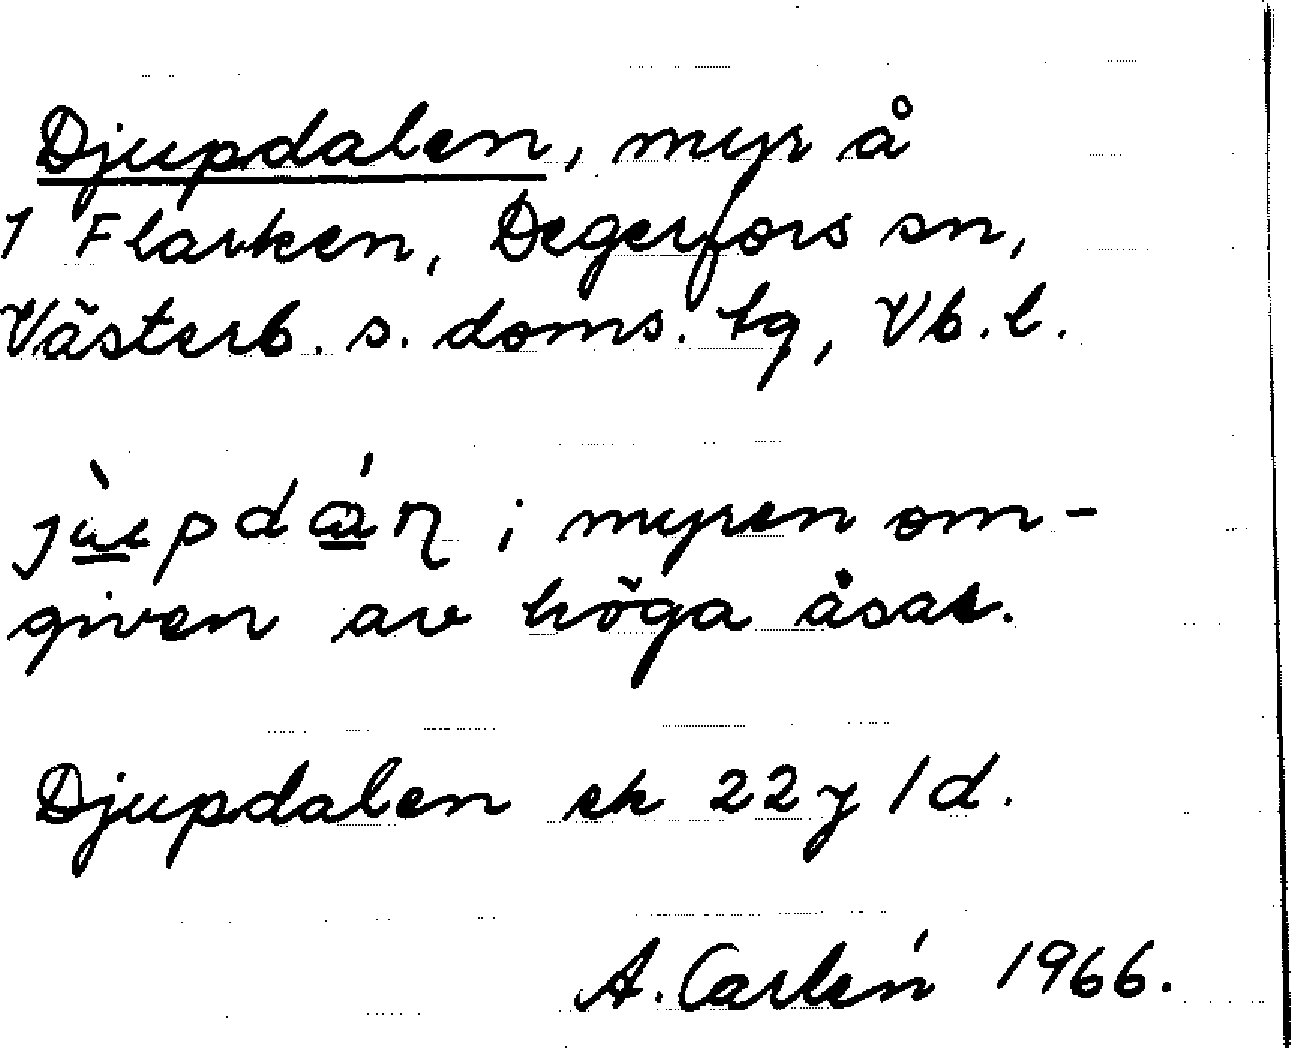 Djupdalen, myr å
1 Flarken, Degerfors sn,
Västerb. s. doms. tg, Vb. l.
; myren om-
given av höga åsar.
Djupdalen ek 22 y 1 d.
A. Carlén 1966.